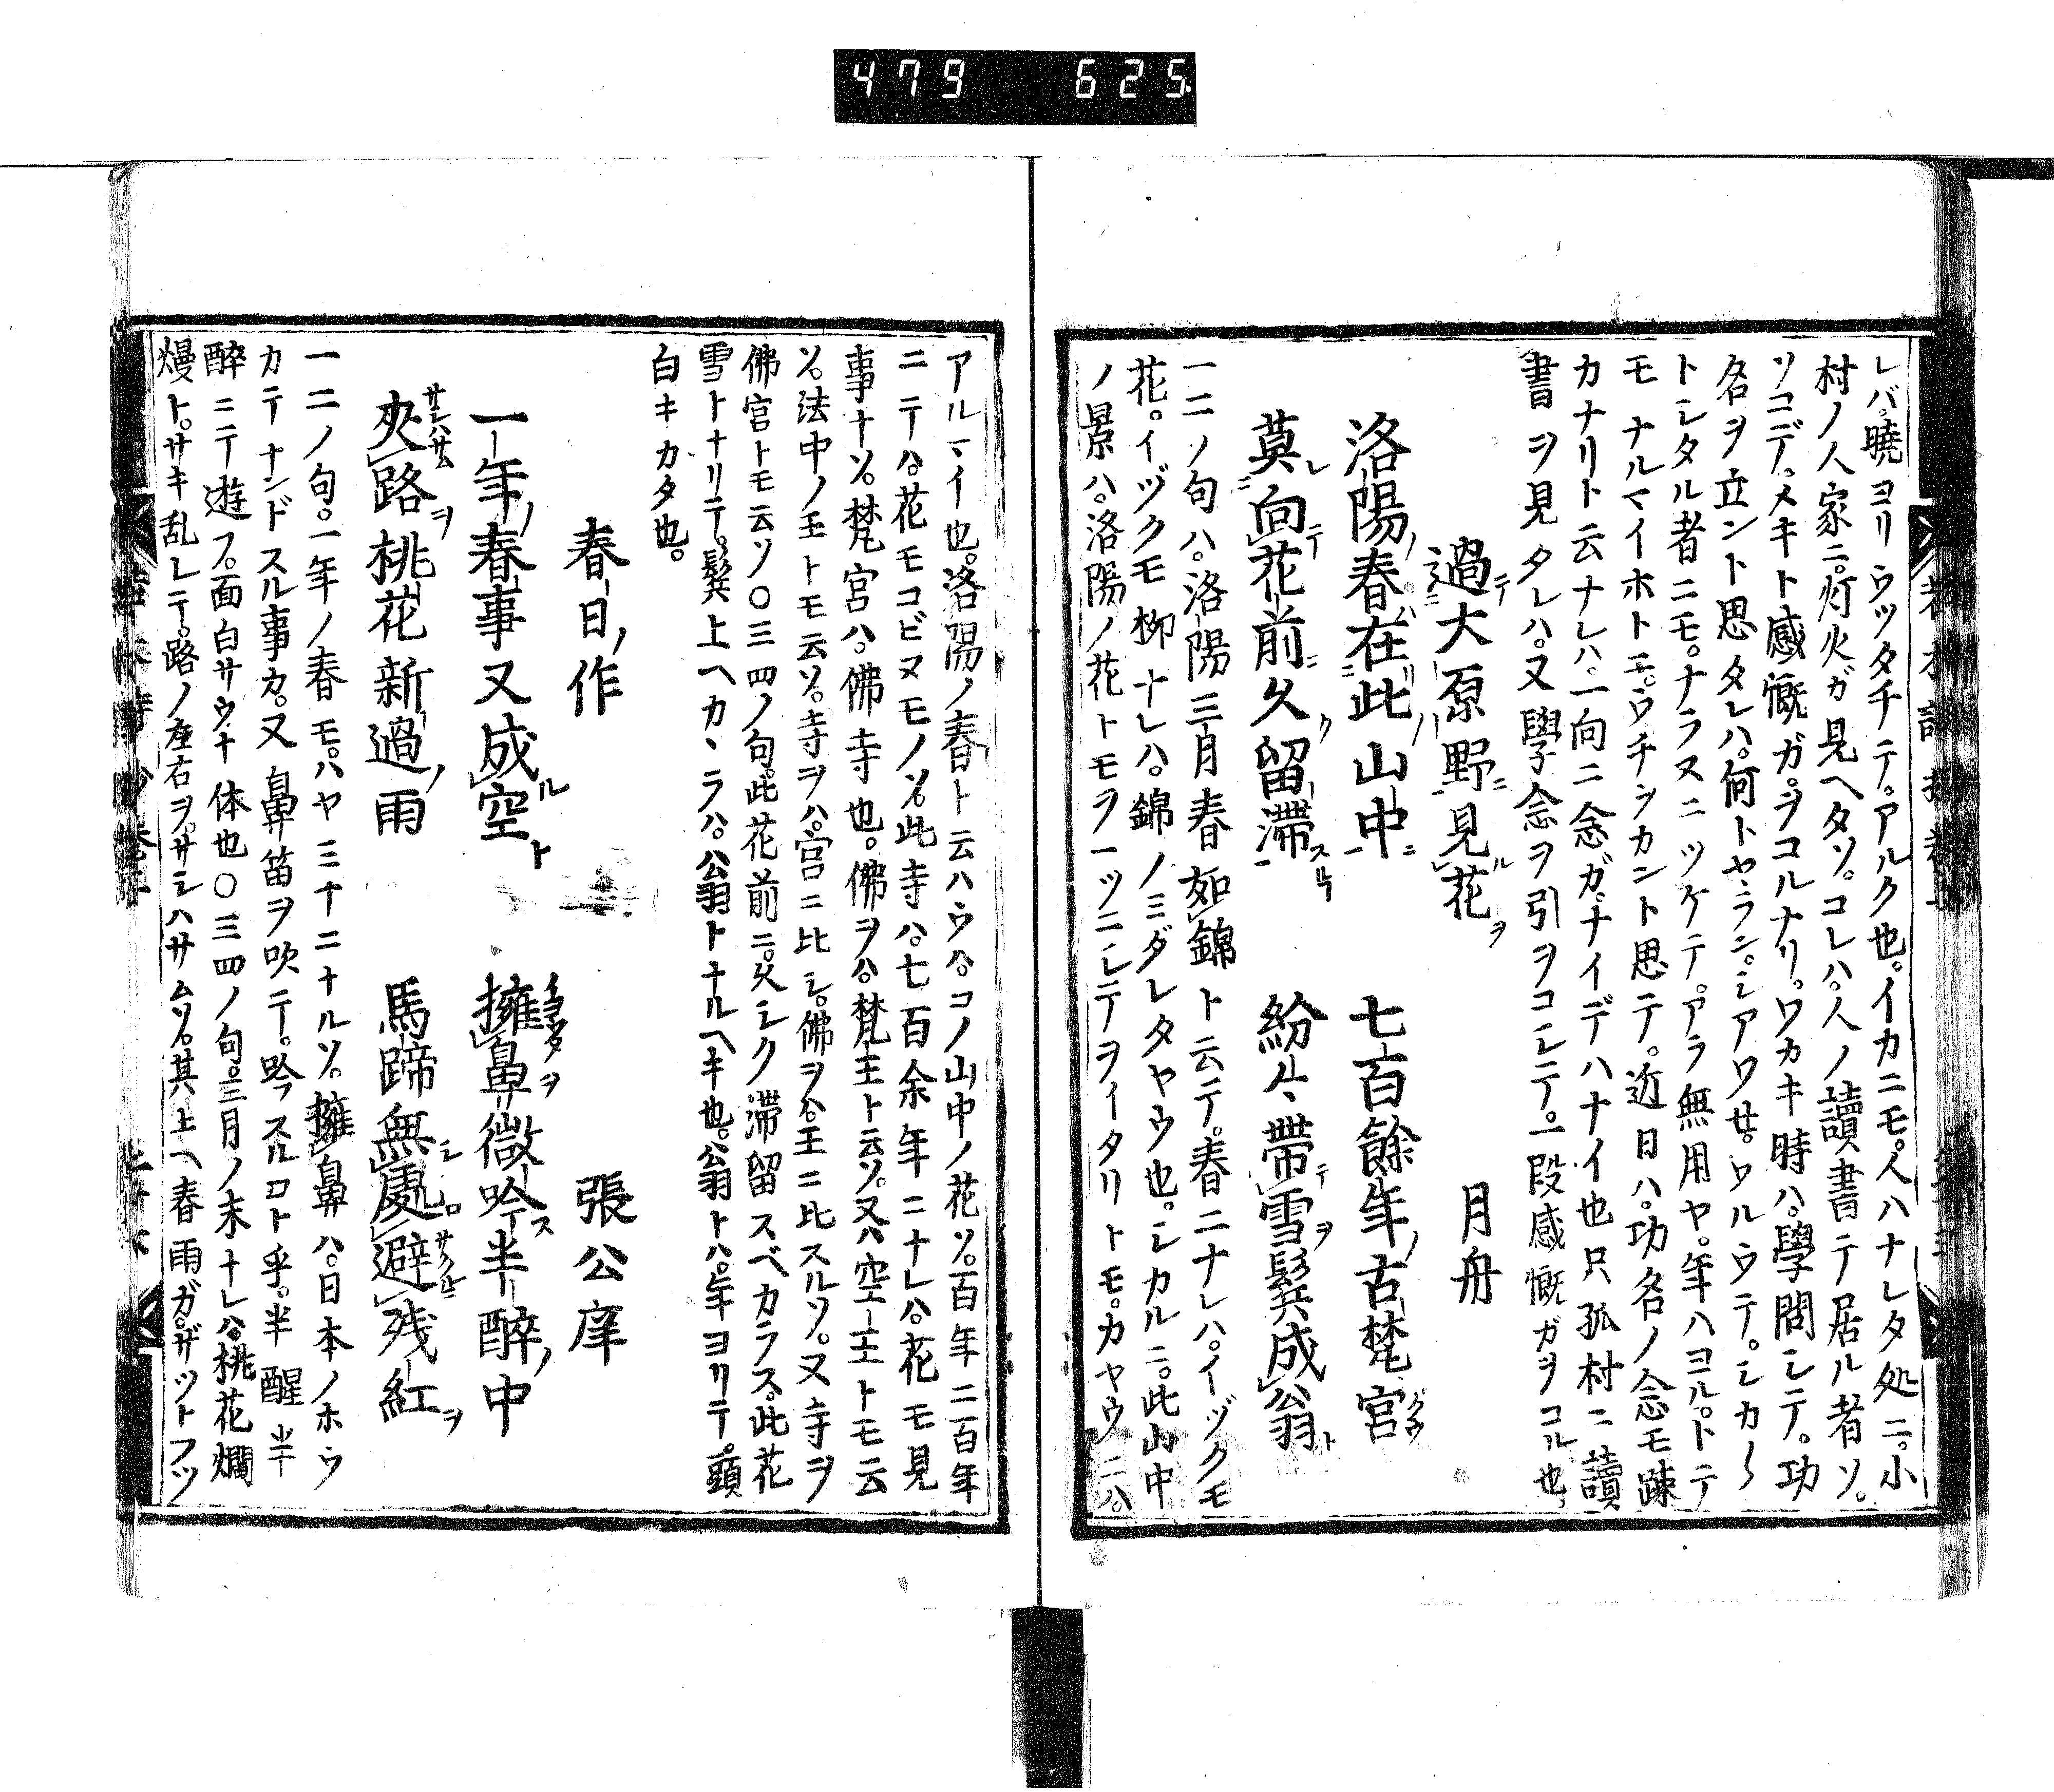 479 625
レバ。曉ヨリウツタチテ。アルク也。イカニモ。人ハナレタ処ニ。小
村ノ人家ニ。灯火ガ見ヘタソ。コレハ。人ノ讀書テ居ル者ソ。
ソコデ。メキト感慨ガ。ヲコルナリ。ワカキ時ハ。學問シテ。功
名ヲ立ント思タレハ。何トヤラン。シアワセ。ワルウテ。シカ〱
トシタル者ニモ。ナラヌニツケテ。アラ無用ヤ。年ハヨル。トテ
モナルマイホトニ。ウチシカント思テ。近日ハ。功名ノ念モ疎
カナリト云ナレハ。一向ニ念ガ。ナイデハナイ也只孤村ニ讀
書ヲ見タレハ。又學念ヲ引ヲコシテ。一段感慨ガヲコル也。
過テ大原野ニ見ル花ヲ 月舟
洛陽ノ春ハ在此ノ山中ニ 七百餘年ノ古梵宮
莫レ向テ花前ニ久ク留滞スル 紛々帶テ雪ヲ鬂成翁ト
一二ノ句ハ。洛陽三月春如錦ト云テ。春ニナレハ。イヅクモ
花。イヅクモ柳ナレハ。錦ノミダレタヤウ也。シカルニ。此山中
ノ景ハ。洛陽ノ花トモヲ一ツニシテヲイタリトモ。カヤウニハ。
アルマイ也。洛陽ノ春ト云ハウハ。コノ山中ノ花ソ。百年二百年
ニテハ。花モコビヌモノソ。此寺ハ。七百余年ニナレハ。花モ見
事ナソ。梵宮ハ。佛寺也。佛ヲハ。梵王ト云ソ。又ハ空王トモ云
ソ。法中ノ王トモ云ソ。寺ヲハ。宮ニ比シ。佛ヲハ。王ニ比スルソ。又寺ヲ
佛宮トモ云ソ〇三四ノ句。此花前ニ。久シク滞留スベカラス。此花
雪トナリテ。鬂上ヘカヽラハ。公翁トナルヘキ也。翁トハ。年ヨリテ。頭
白キカタ也。
春日ノ作 張公庠
一年ノ春事又成ル空ト 擁鼻ヲ微吟ス半醉ノ中
夾サシハサム路ヲ桃花新過ノ雨 馬蹄無シ處ロ避残紅ヲ
一二ノ句。一年ノ春モ。ハヤ三十二ナルソ。擁鼻ハ。日本ノホウ
カテナンドスル事カ。又鼻笛ヲ吹テ。吟スルコト乎。半醒半
醉ニテ遊フ。面白サウナ体也〇三四ノ句。三月ノ末ナレハ。桃花爛
熳ト。サキ乱レテ。路ノ左右ヲ。サシハサムソ。其上ヘ春雨ガ。ザツトフツ